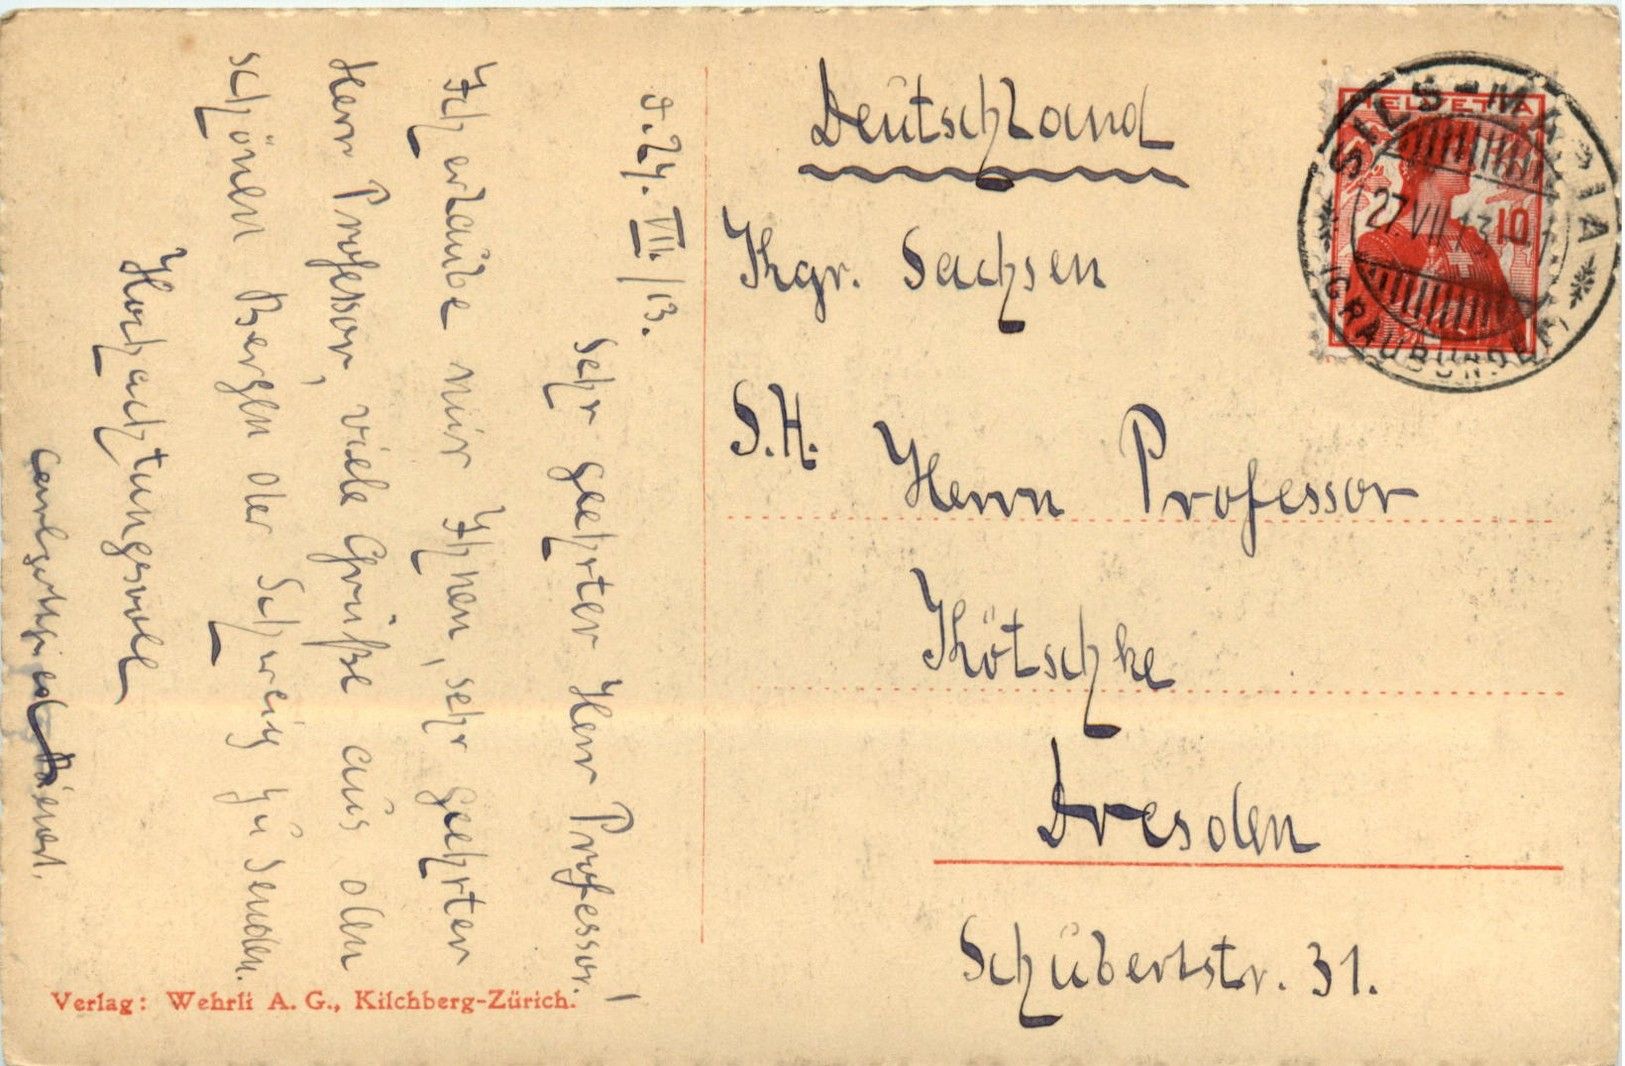 d. 27. VII./13.
Sehr geehrter Herr Professor!
Ich erlaube mir Ihnen, sehr geehrter
Herr Professor, viele Grüße aus den
schönen Bergen der Schweiz zu senden.
Hochachtungsvoll
Verlag: Wehrli A. G., Kilchberg-Zürich.
Deutschland
Kgr. Sachsen
S.H.
Herrn Professor
Kötschke
Dresden
Schubertstr. 31.
HELVETIA
10
SILS-MARIA
27.VII.13
(GRAUBÜNDEN)